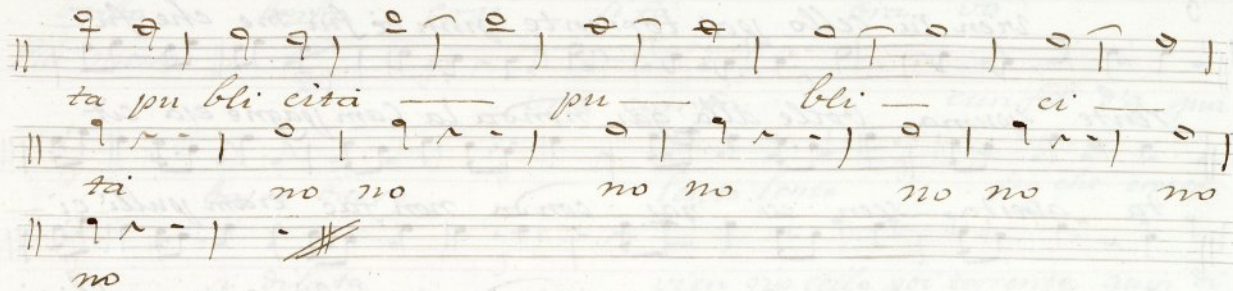 ta pu bli cità — pu — bli — ci —
tà no no no no no no no
no